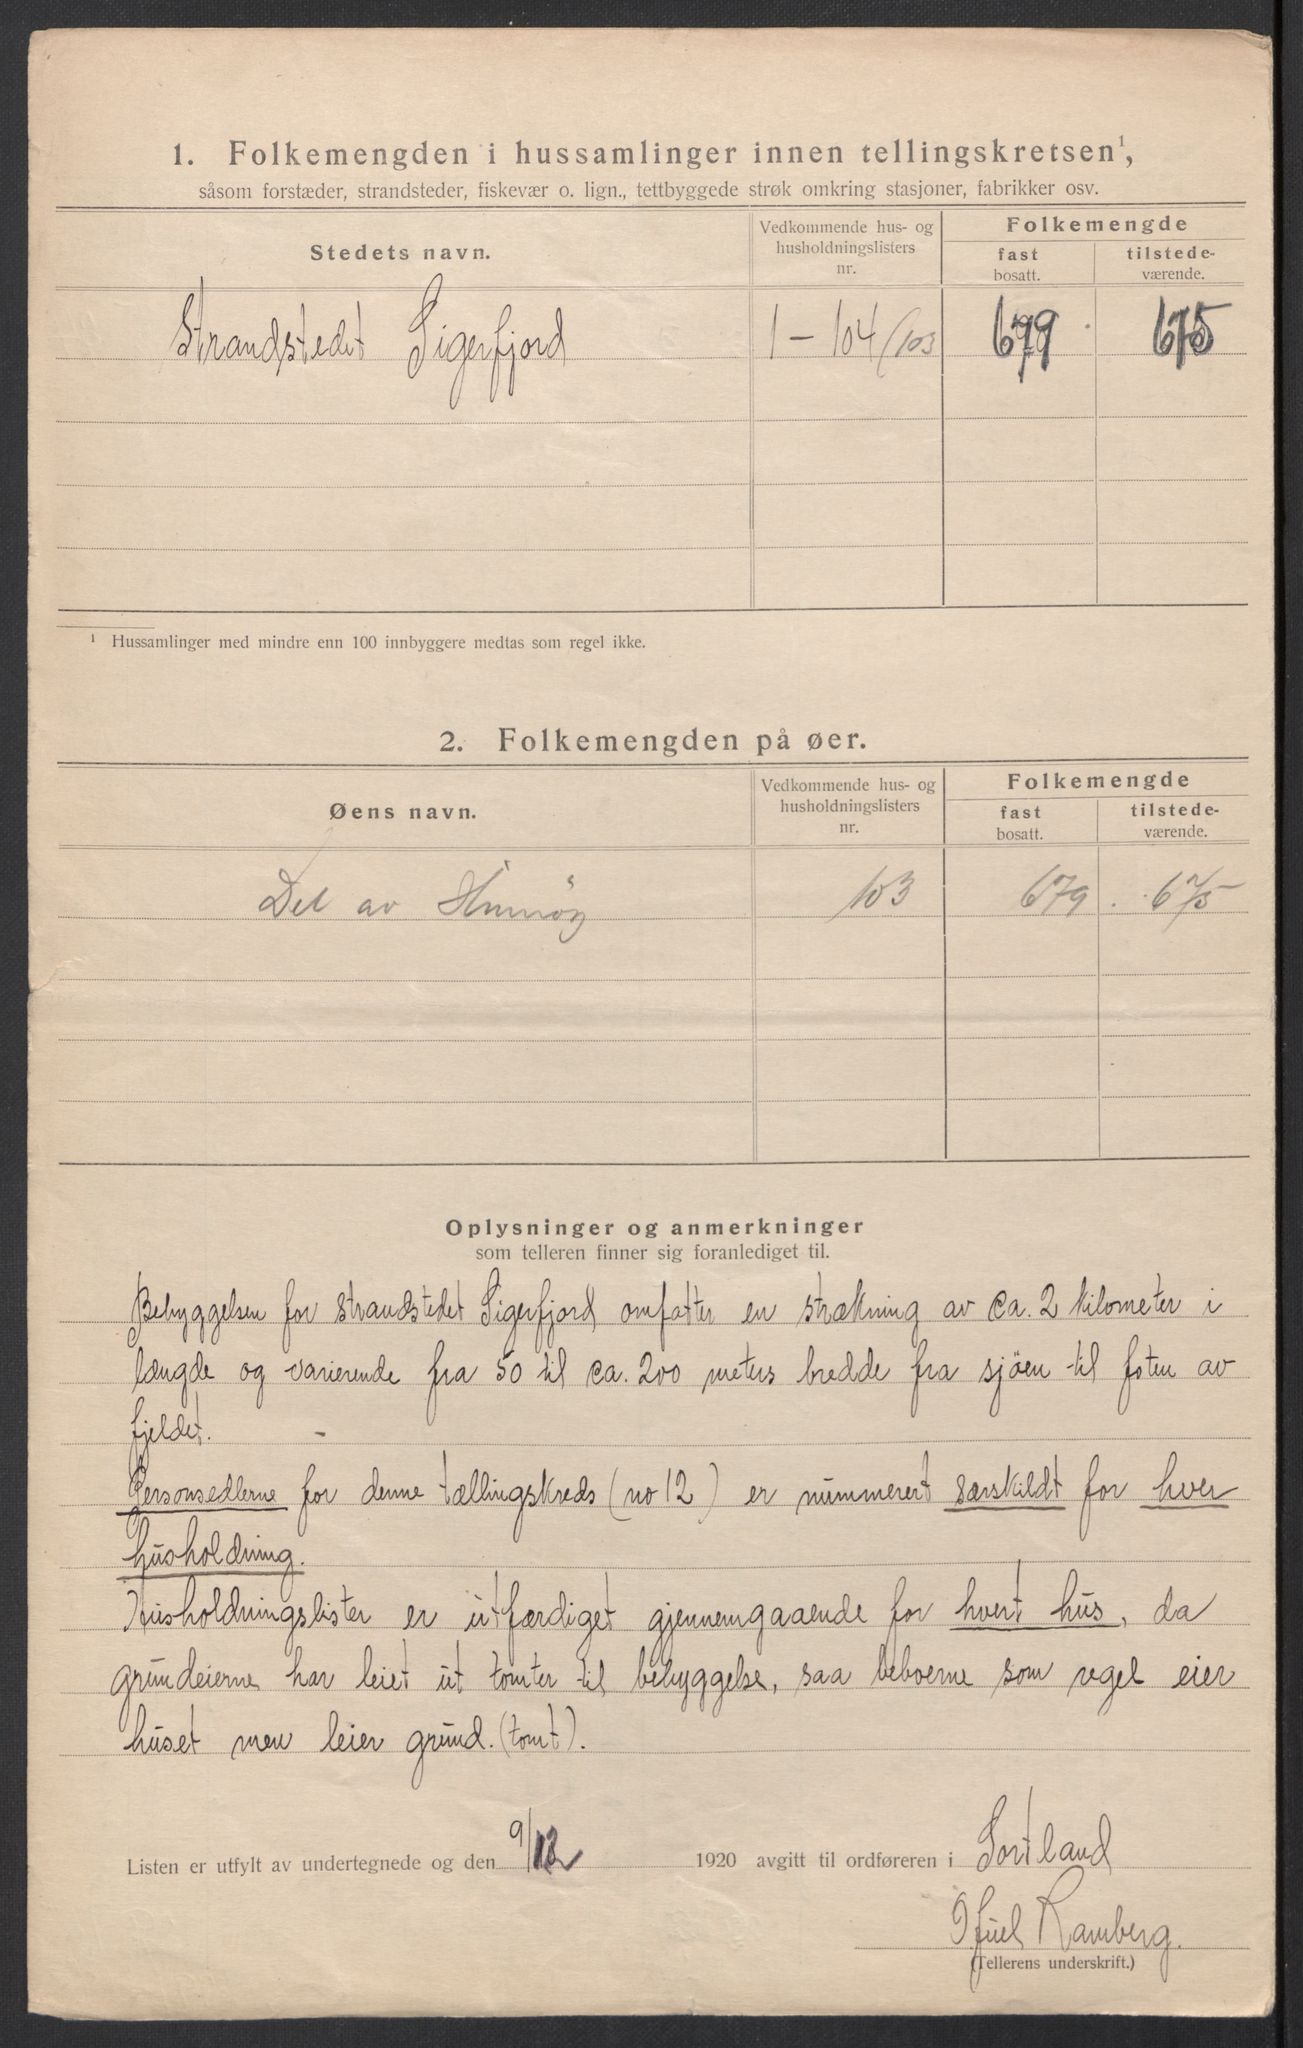 1. Folkemengden i hussamlinger innen tellingskretsen¹,
såsom forstæder, strandsteder, fiskevær o. lign., tettbyggede strøk omkring stasjoner, fabrikker osv.
Stedets navn. Vedkommende hus- og husholdningslisters nr. Folkemengde
fast bosatt. tilstede-værende.
Strandstedet Sigerfjord 1 - 104 (103 679 675
¹ Hussamlinger med mindre enn 100 innbyggere medtas som regel ikke.
2. Folkemengden på øer.
Øens navn. Vedkommende hus- og husholdningslisters nr. Folkemengde
fast bosatt. tilstede-værende.
Del av Hinnöy 103 679 675
Oplysninger og anmerkninger
som telleren finner sig foranlediget til.
Bebyggelsen for strandstedet Sigerfjord omfatter en strækning av ca. 2 kilometer i
længde og varierende fra 50 til ca. 200 meters bredde fra sjöen til foten av
fjeldet. -
Personsedlerne for denne tællingskreds (no 12) er nummerert særskildt for hver
husholdning.
Husholdningslister er utfærdiget gjennemgaaende for hvert hus, da
grundeierne har leiet ut tomter til bebyggelse, saa beboerne som regel eier
huset men leier grund. (tomt).
Listen er utfylt av undertegnede og den 9/12 1920 avgitt til ordføreren i Sortland
Ramberg.
(Tellerens underskrift.)